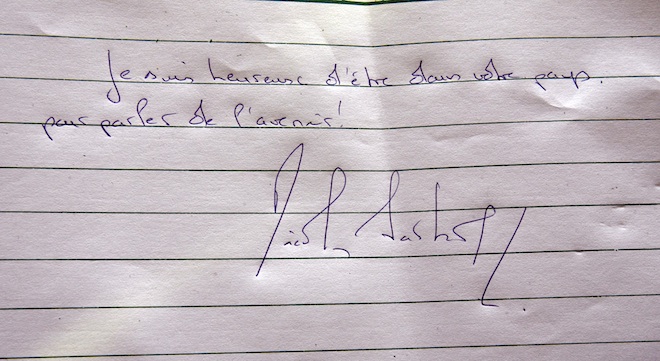 Je suis heureuse d'être dans votre pays.
pour parler de l'avenir!
Nicolas Sarkozy